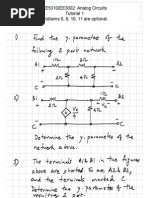 EE5310/EE3002: Analog Circuits
Tutorial 1
Problems 6, 8, 10, 11 are optional.
1) Find the y-parameters of the
following 2 port network.
A1 1Ω 2Ω A2
2Ω 4Ω
C C
2) B1 1Ω B2
4Ω
C C
Determine the y-parameters of the
network above.
3) The terminals A1 & B1 in the figures
above are shorted. So are A2 & B2,
and the terminals marked C.
Determine the y-parameters of the
resulting 2 port.